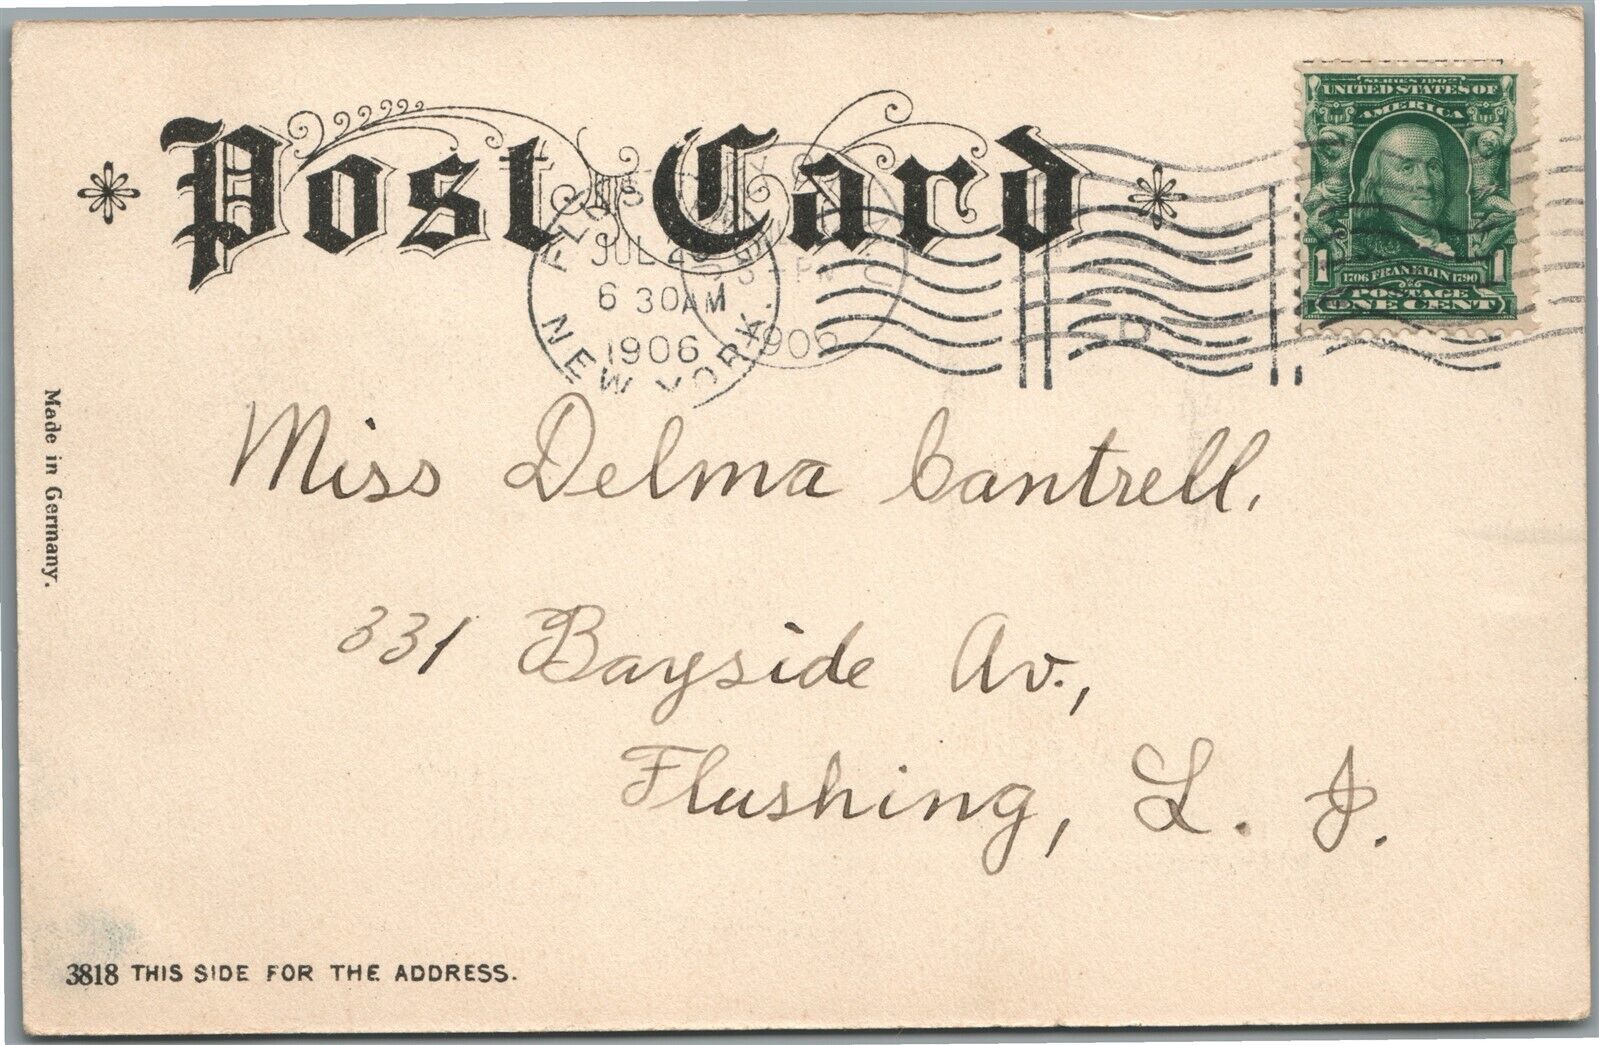 Post Card
SERIES 1902
UNITED STATES OF
AMERICA
1 1706 FRANKLIN 1790 1
POSTAGE
ONE CENT
JUL
6 30 AM
1906
NEW YORK.
1906
D
Miss Delma Cantrell,
331 Bayside Av.,
Flushing, L. I.
Made in Germany.
3818 THIS SIDE FOR THE ADDRESS.